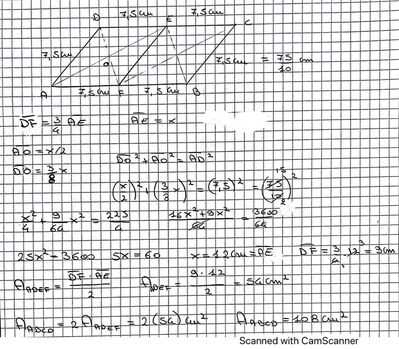 7,5cm 7,5cm
D E C
7,5cm 7,5cm 7,5cm = 75/10 cm
O
A 7,5cm F 7,5cm B
DF = 3/4 AE AE = x
AO = x/2
DO = 3/8 x DO² + AO² = AD²
(x/2)² + (3/8 x)² = (7,5)² = (75/10)² 15 2
x²/4 + 9/64 x² = 225/4 16x²+9x²/64 = 3600/64
25x² = 3600 5x = 60 x = 12cm = AE DF = 3/4 · 12 3 = 9cm
A ADEF = DF · AE / 2 A ADEF = 9 · 12 / 2 = 54cm²
A ABCD = 2 A ADEF = 2(54)cm² A ABCD = 108cm²
Scanned with CamScanner